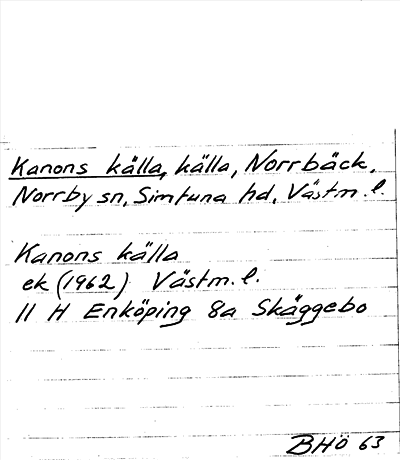 Kanons källa, källa, Norrbäck,
Norrby sn, Simtuna hd, Västm. l.
Kanons källa
ek (1962) Västm. l.
11 H Enköping 8a Skäggebo
BHÖ 63